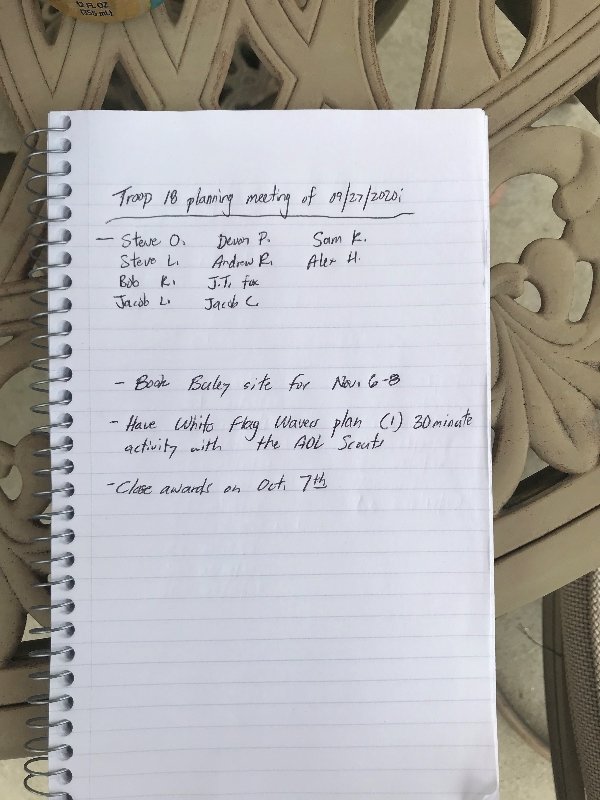 12 FL OZ
(355 mL)
Troop 18 planning meeting of 09/27/2020:
- Steve O. Devon P. Sam K.
Steve L. Andrew R. Alex H.
Bob K. J.T. Fox
Jacob L. Jacob C.
- Book site for Nov. 6-8
- Have White Flag Wavers plan (1) 30 minute
activity with the AOL Scouts
- Close awards on Oct. 7th